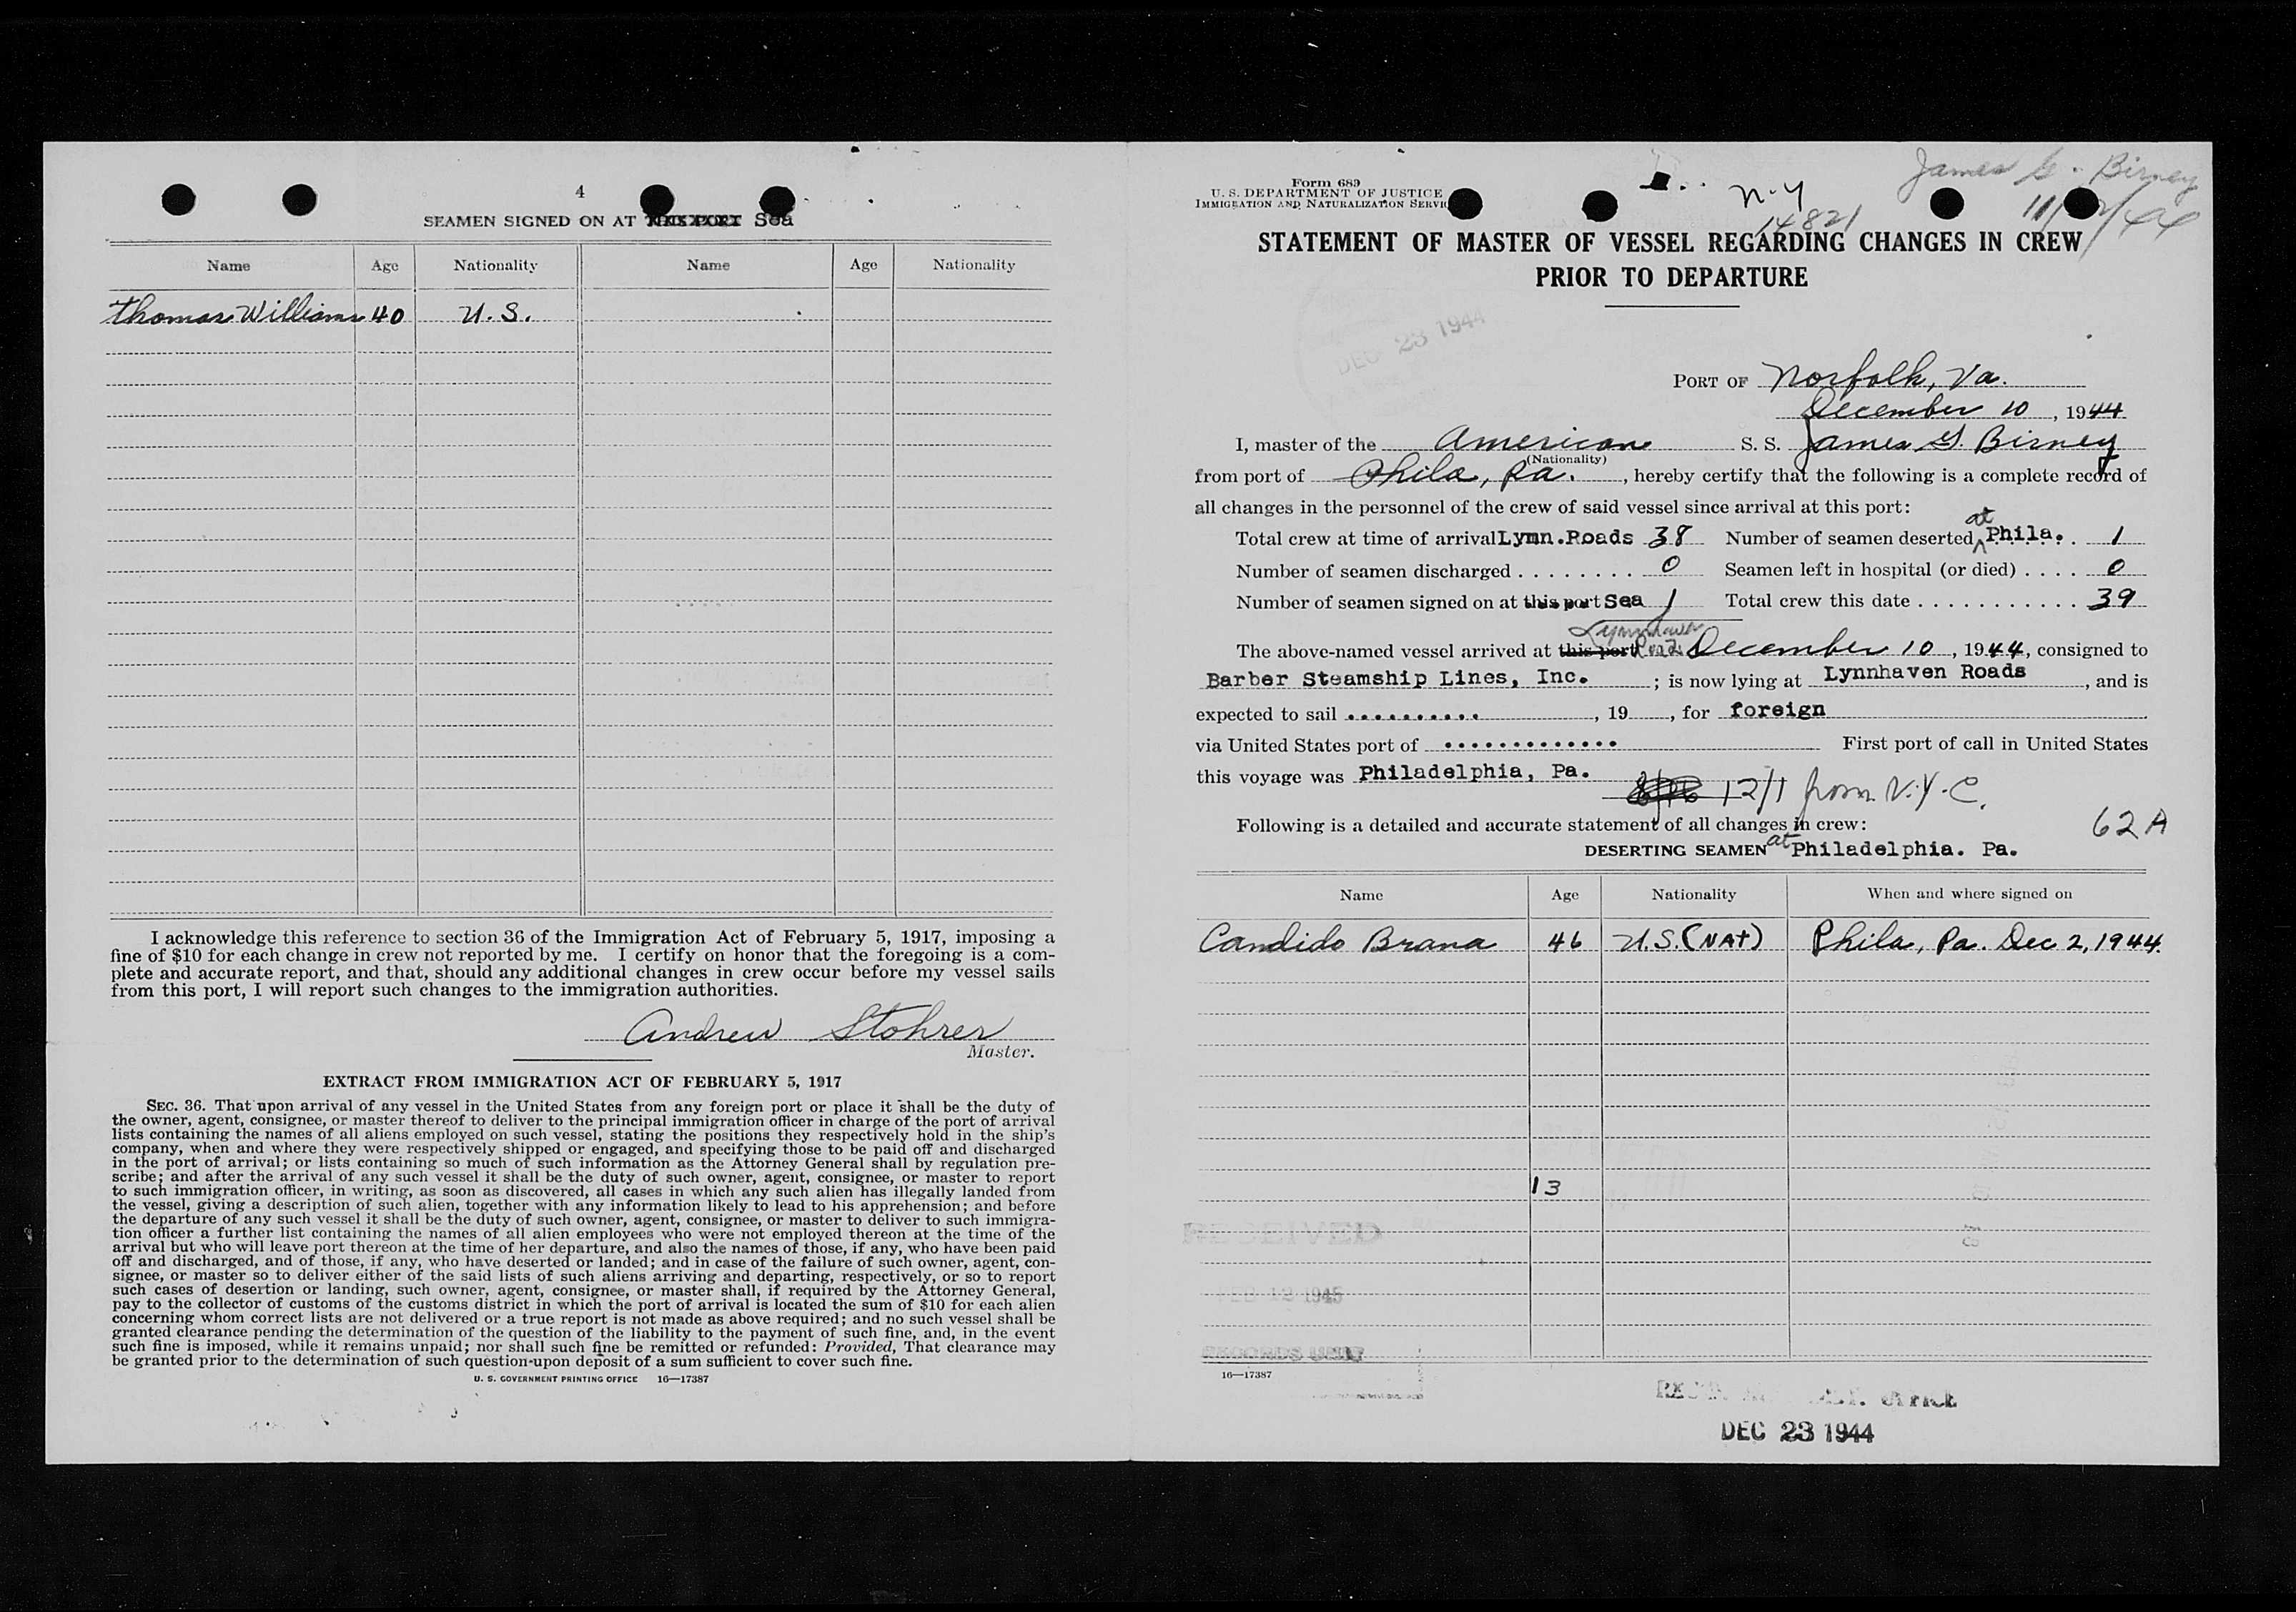 4
SEAMEN SIGNED ON AT THIS PORT Sea
Name Age Nationality Name Age Nationality
Thomas Williams 40 U.S.
I acknowledge this reference to section 36 of the Immigration Act of February 5, 1917, imposing a
fine of $10 for each change in crew not reported by me. I certify on honor that the foregoing is a com-
plete and accurate report, and that, should any additional changes in crew occur before my vessel sails
from this port, I will report such changes to the immigration authorities.
Andrew Stohrer
Master.
EXTRACT FROM IMMIGRATION ACT OF FEBRUARY 5, 1917
SEC. 36. That upon arrival of any vessel in the United States from any foreign port or place it shall be the duty of
the owner, agent, consignee, or master thereof to deliver to the principal immigration officer in charge of the port of arrival
lists containing the names of all aliens employed on such vessel, stating the positions they respectively hold in the ship's
company, when and where they were respectively shipped or engaged, and specifying those to be paid off and discharged
in the port of arrival; or lists containing so much of such information as the Attorney General shall by regulation pre-
scribe; and after the arrival of any such vessel it shall be the duty of such owner, agent, consignee, or master to report
to such immigration officer, in writing, as soon as discovered, all cases in which any such alien has illegally landed from
the vessel, giving a description of such alien, together with any information likely to lead to his apprehension; and before
the departure of any such vessel it shall be the duty of such owner, agent, consignee, or master to deliver to such immigra-
tion officer a further list containing the names of all alien employees who were not employed thereon at the time of the
arrival but who will leave port thereon at the time of her departure, and also the names of those, if any, who have been paid
off and discharged, and of those, if any, who have deserted or landed; and in case of the failure of such owner, agent, con-
signee, or master so to deliver either of the said lists of such aliens arriving and departing, respectively, or so to report
such cases of desertion or landing, such owner, agent, consignee, or master shall, if required by the Attorney General,
pay to the collector of customs of the customs district in which the port of arrival is located the sum of $10 for each alien
concerning whom correct lists are not delivered or a true report is not made as above required; and no such vessel shall be
granted clearance pending the determination of the question of the liability to the payment of such fine, and, in the event
such fine is imposed, while it remains unpaid; nor shall such fine be remitted or refunded: Provided, That clearance may
be granted prior to the determination of such question upon deposit of a sum sufficient to cover such fine.
U. S. GOVERNMENT PRINTING OFFICE 16—17387
Form 689
U. S. DEPARTMENT OF JUSTICE
IMMIGRATION AND NATURALIZATION SERVIC
N.Y
14821
James G. Birney
STATEMENT OF MASTER OF VESSEL REGARDING CHANGES IN CREW
PRIOR TO DEPARTURE
DEC 23 1944
PORT OF Norfolk, Va.
December 10, 1944
I, master of the American S. S. James G. Birney
(Nationality)
from port of Phila, Pa., hereby certify that the following is a complete record of
all changes in the personnel of the crew of said vessel since arrival at this port:
Total crew at time of arrival Lynn.Roads 38 Number of seamen deserted at Phila. 1
Number of seamen discharged ........ 0 Seamen left in hospital (or died) .... 0
Number of seamen signed on at this port Sea 1 Total crew this date ............ 39
Lynnhaven
The above-named vessel arrived at this port Roads December 10, 1944, consigned to
Barber Steamship Lines, Inc. ; is now lying at Lynnhaven Roads, and is
expected to sail .........., 19 , for foreign
via United States port of ............. First port of call in United States
this voyage was Philadelphia, Pa.
12/1 from N.Y.C.
Following is a detailed and accurate statement of all changes in crew:
62A
DESERTING SEAMEN at Philadelphia. Pa.
Name Age Nationality When and where signed on
Candido Brana 46 U.S. (NAT) Phila, Pa. Dec 2, 1944.
13
RECEIVED
FEB 12 1945
RECORDS UNIT
16—17387
OFFICE
DEC 23 1944